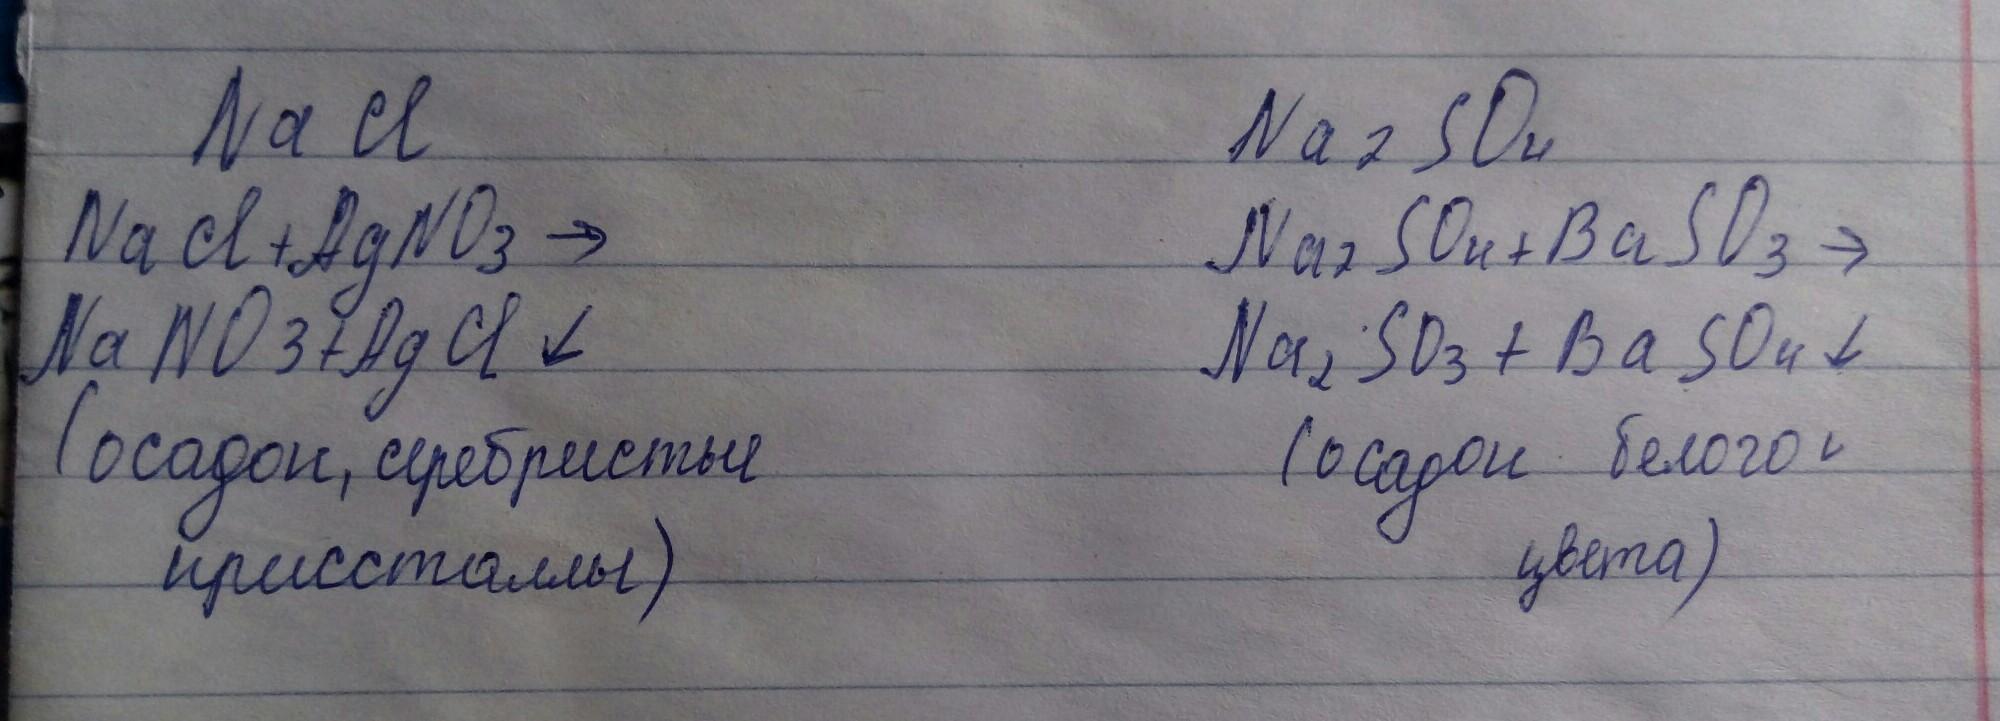 NaCl
NaCl+AgNO3→
NaNO3+AgCl↓
(осадок, серебристые
крисссталлы)
Na2SO4
Na2SO4+BaSO3→
Na2SO3+BaSO4↓
(осадок белого
цвета)